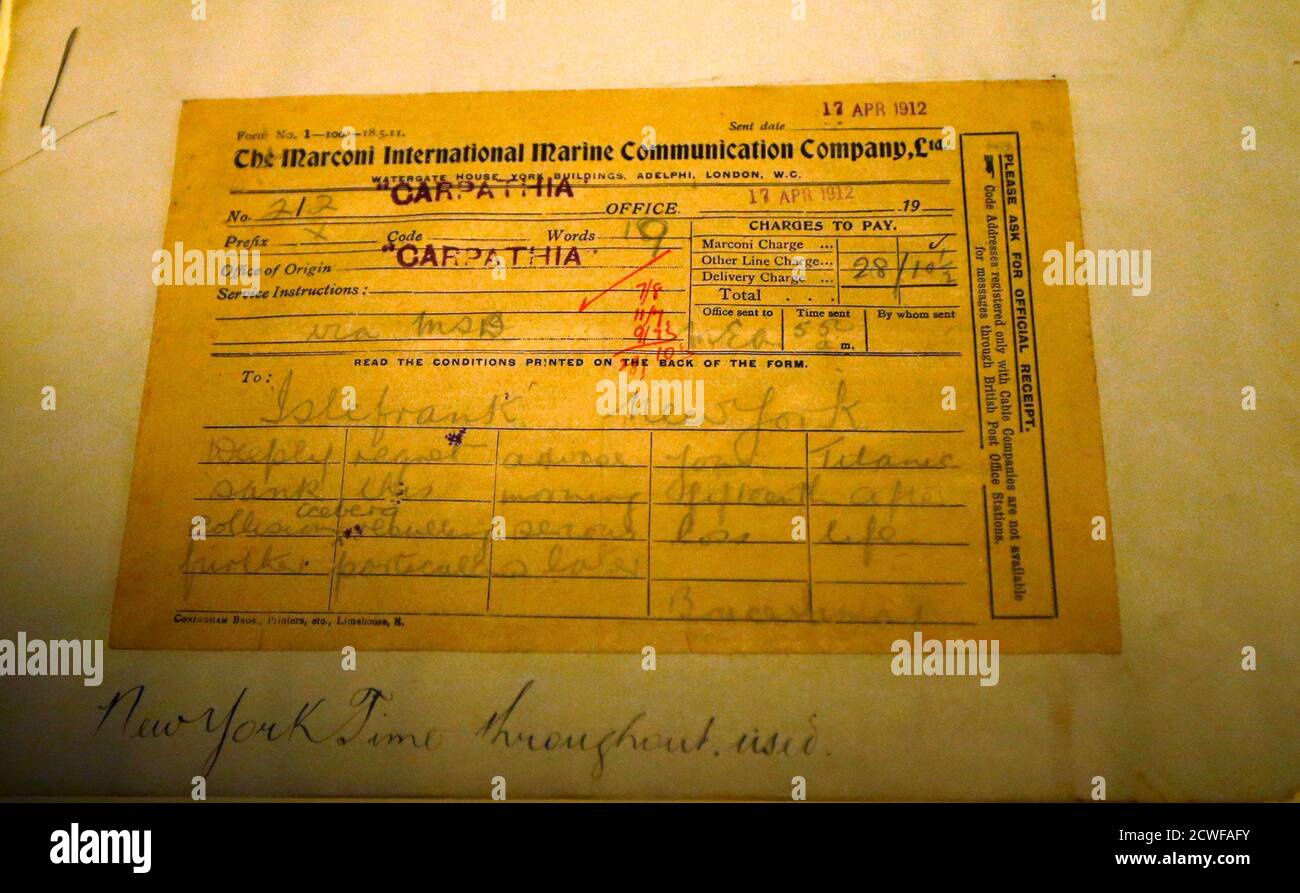 17 APR 1912
Form No. 1—100.—18.5.11. Sent date
The Marconi International Marine Communication Company, Ltd.
WATERGATE HOUSE, YORK BUILDINGS, ADELPHI, LONDON, W.C.
"CARPATHIA" 17 APR 1912
No. 212 OFFICE 19
Prefix X Code Words 19
CHARGES TO PAY.
Marconi Charge ...
Other Line Charge...
Delivery Charge ...
28/10½
Total . . .
Office of Origin "CARPATHIA"
Service Instructions :
7/8
via MSD
Office sent to Time sent By whom sent
MEA 5 50 a m.
READ THE CONDITIONS PRINTED ON THE BACK OF THE FORM.
To: Islefrank New York
Deeply regret advise you Titanic
sank this morning fifteenth after
collision iceberg resulting serious loss life
further particulars later
Bruce Ismay
CONINGHAM BROS., Printers, etc., Limehouse, E.
PLEASE ASK FOR OFFICIAL RECEIPT.
Code Addresses registered only with Cable Companies are not available
for messages through British Post Office Stations.
New York Time throughout. used.
alamy
alamy
Image ID: 2CWFAFY
www.alamy.com